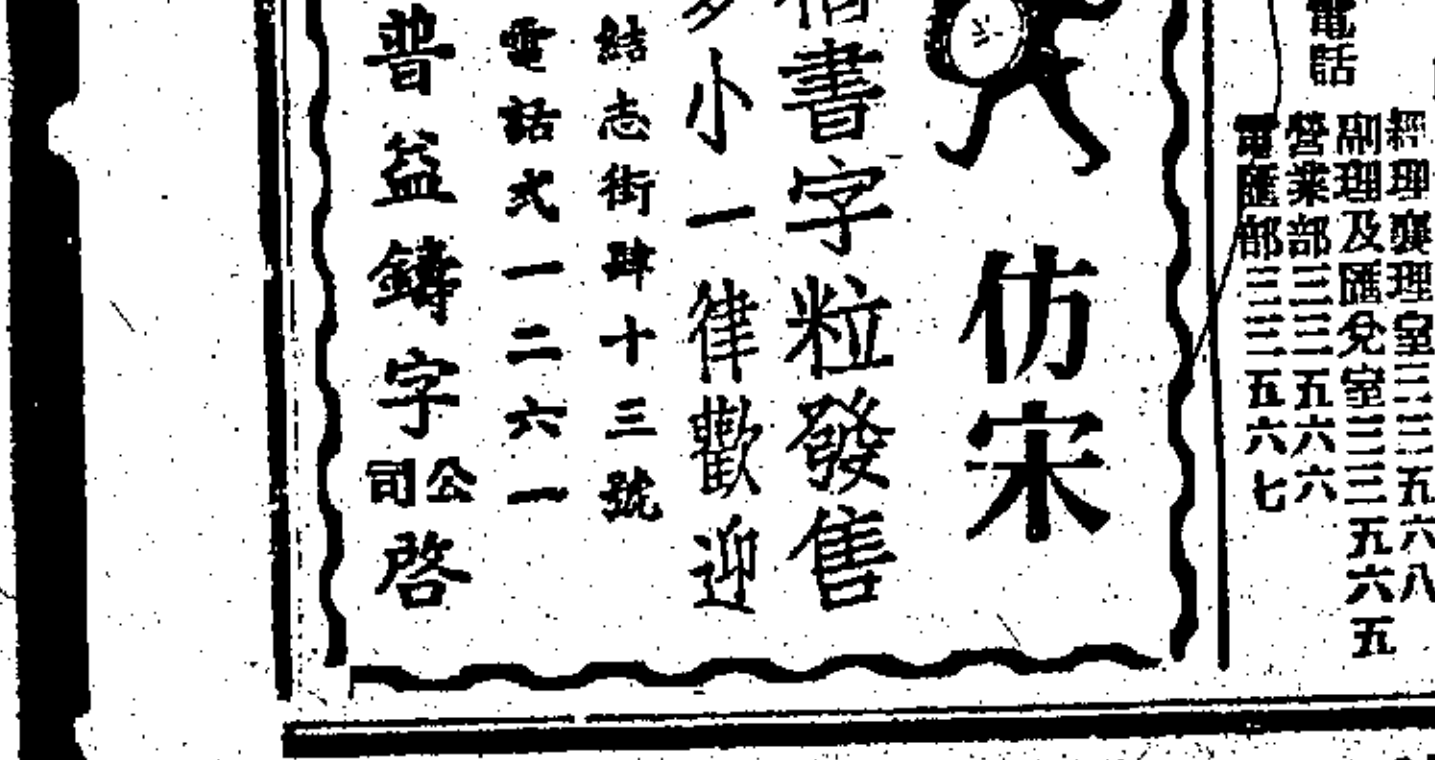 電話
經理襄理室三三五六八
副理及匯兌室三三五六五
營業部三三五六六
電匯部三三五六七
仿宋
書字粒發售
小一律歡迎
結志街肆十三號
電話式一二六一
普益鑄字公司啓